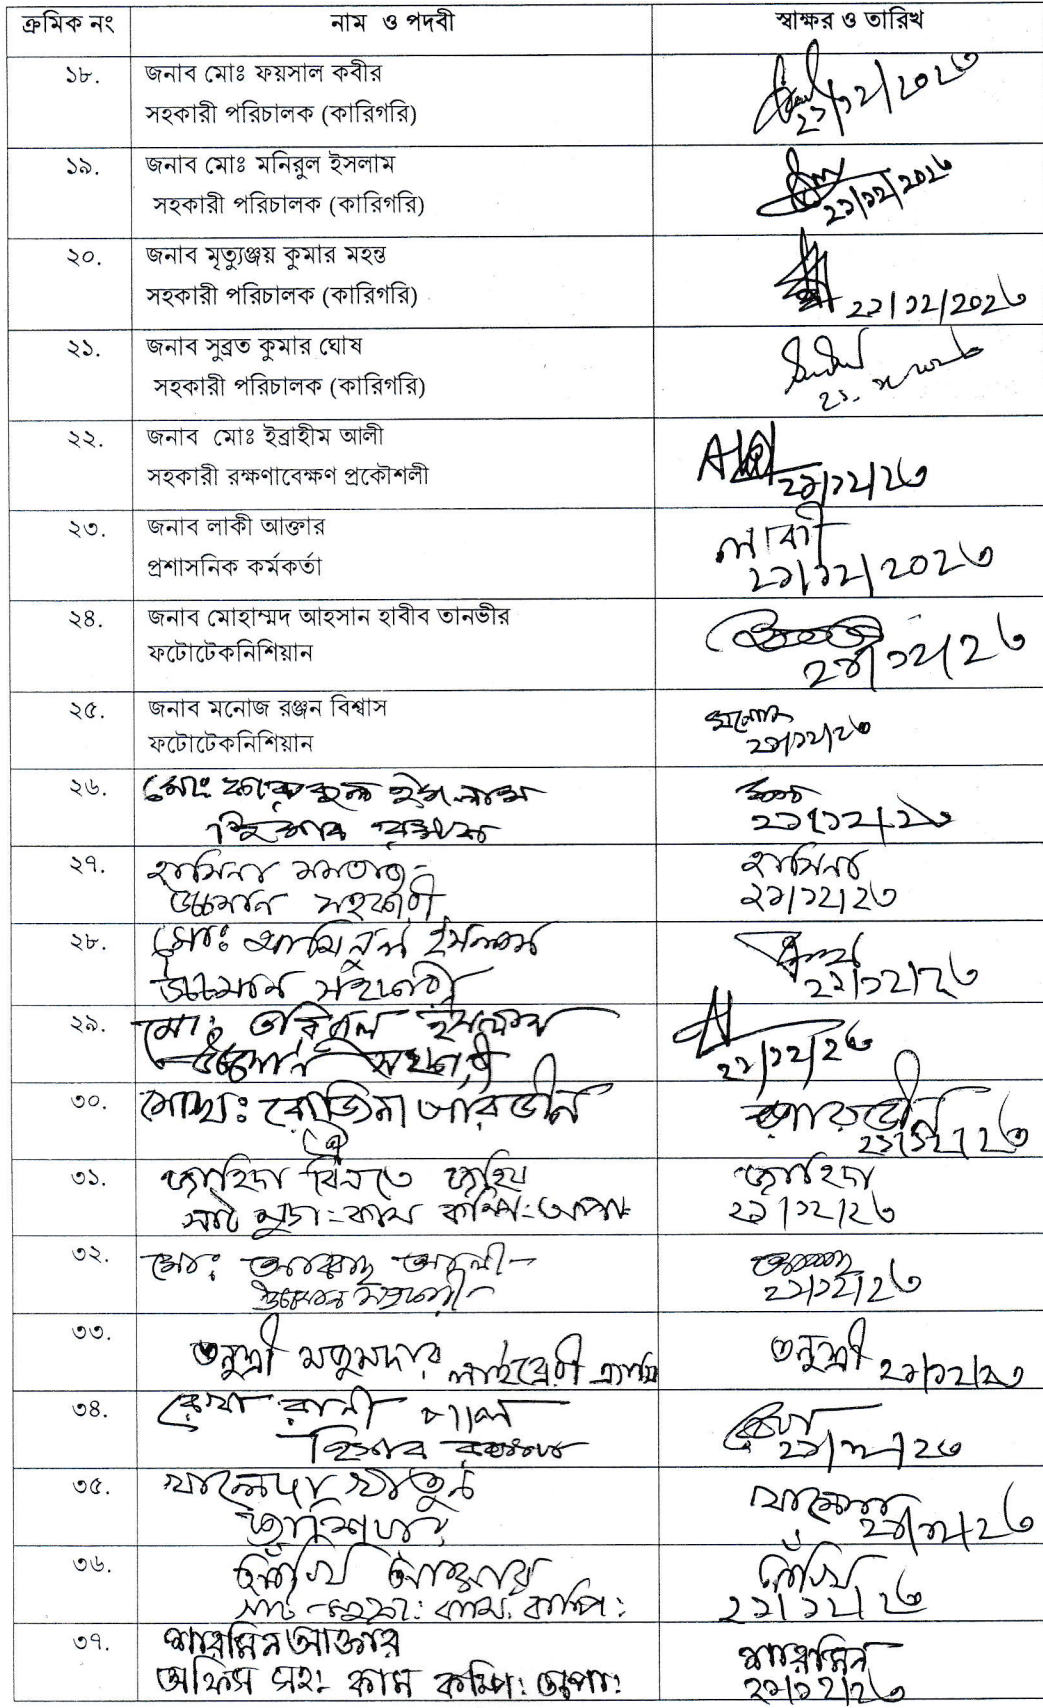 ক্রমিক নং নাম ও পদবী স্বাক্ষর ও তারিখ
১৮. জনাব মোঃ ফয়সাল কবীর
সহকারী পরিচালক (কারিগরি) ২১/১২/২০২৩
১৯. জনাব মোঃ মনিরুল ইসলাম
সহকারী পরিচালক (কারিগরি) ২১/১২/২০২৩
২০. জনাব মৃত্যুঞ্জয় কুমার মহন্ত
সহকারী পরিচালক (কারিগরি) ২১/১২/২০২৩
২১. জনাব সুব্রত কুমার ঘোষ
সহকারী পরিচালক (কারিগরি)
২২. জনাব মোঃ ইব্রাহীম আলী
সহকারী রক্ষণাবেক্ষণ প্রকৌশলী ২১/১২/২৩
২৩. জনাব লাকী আক্তার লাকী
প্রশাসনিক কর্মকর্তা ২১/১২/২০২৩
২৪. জনাব মোহাম্মদ আহসান হাবীব তানভীর
ফটোটেকনিশিয়ান ২১/১২/২৩
২৫. জনাব মনোজ রঞ্জন বিশ্বাস মনোজ
ফটোটেকনিশিয়ান ২১/১২/২৩
২৬. মোঃ ইসলাম
হিসাব রক্ষক ২১/১২/২৩
২৭. হাসিনা মমতাজ হাসিনা
উচ্চমান সহকারী ২১/১২/২৩
২৮. মোঃ আমিনুল ইসলাম
উচ্চমান সহকারী ২১/১২/২৩
২৯. মোঃ তরিকুল ইসলাম
উচ্চমান সহকারী ২১/১২/২৩
৩০. মোছাঃ রোজিনা পারভীন পারভীন
২১/১২/২৩
৩১. জাহিদা বিনতে জাহিদা
সাট মুদ্রাঃ কাম কম্পিঃ অপাঃ ২১/১২/২৩
৩২. মোঃ আলী
উচ্চমান সহকারী ২১/১২/২৩
৩৩. তনুশ্রী মজুমদার লাইব্রেরী তনুশ্রী ২১/১২/২৩
৩৪. রেখা রানী পাল রেখা
হিসাব রক্ষক ২১/১২/২৩
৩৫. খালেদা খাতুন খালেদা
২১/১২/২৩
৩৬. আক্তার
সাট কাম কম্পিঃ ২১/১২/২৩
৩৭. শারমিন আক্তার শারমিন
অফিস সহঃ কাম কম্পিঃ অপাঃ ২১/১২/২৩